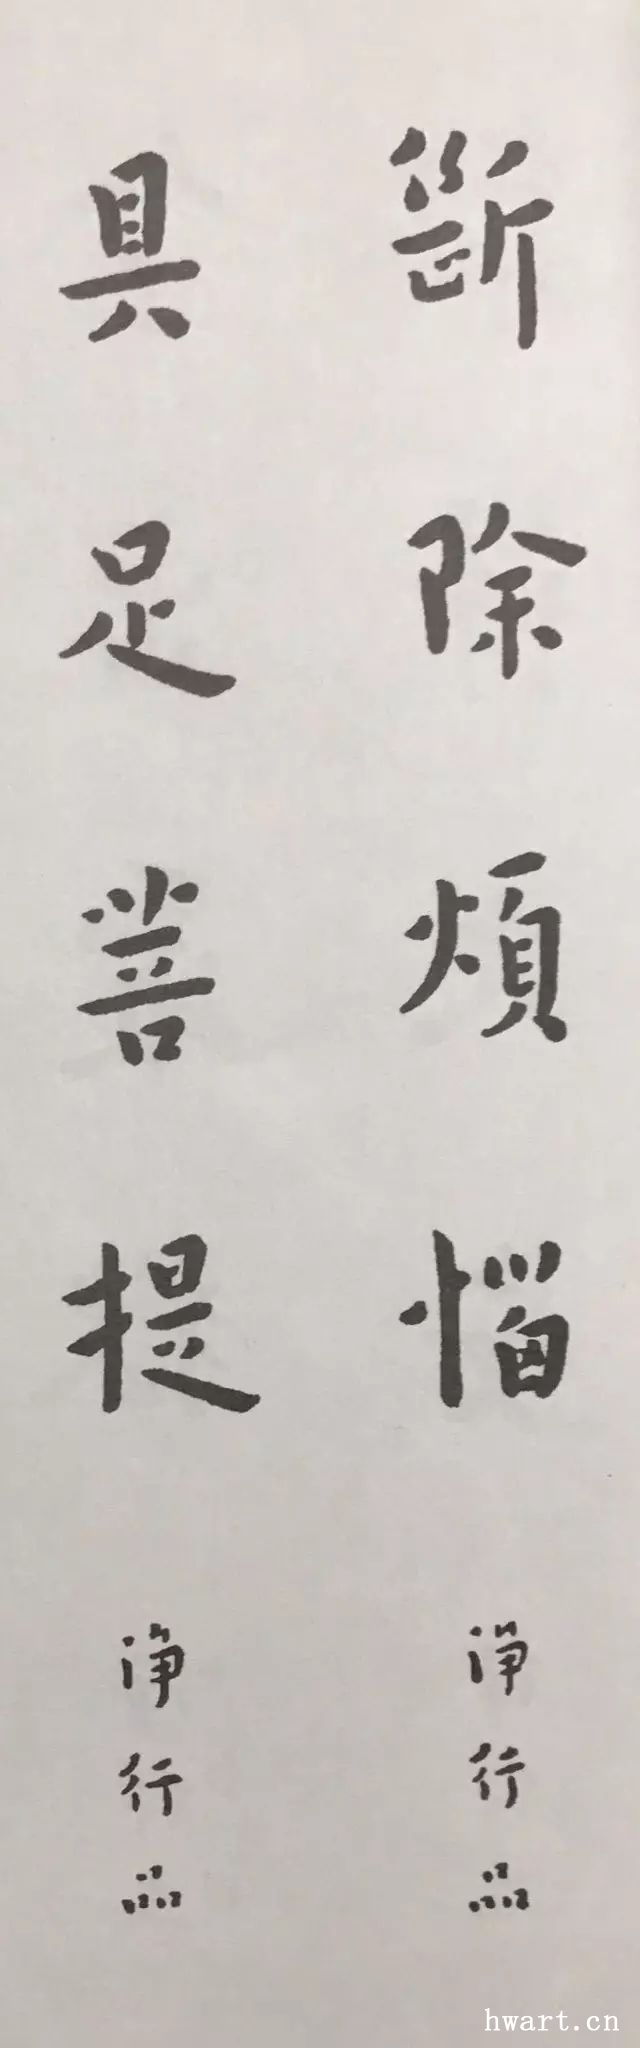 斷除煩惱
淨行品
具足菩提
淨行品
hwart.cn